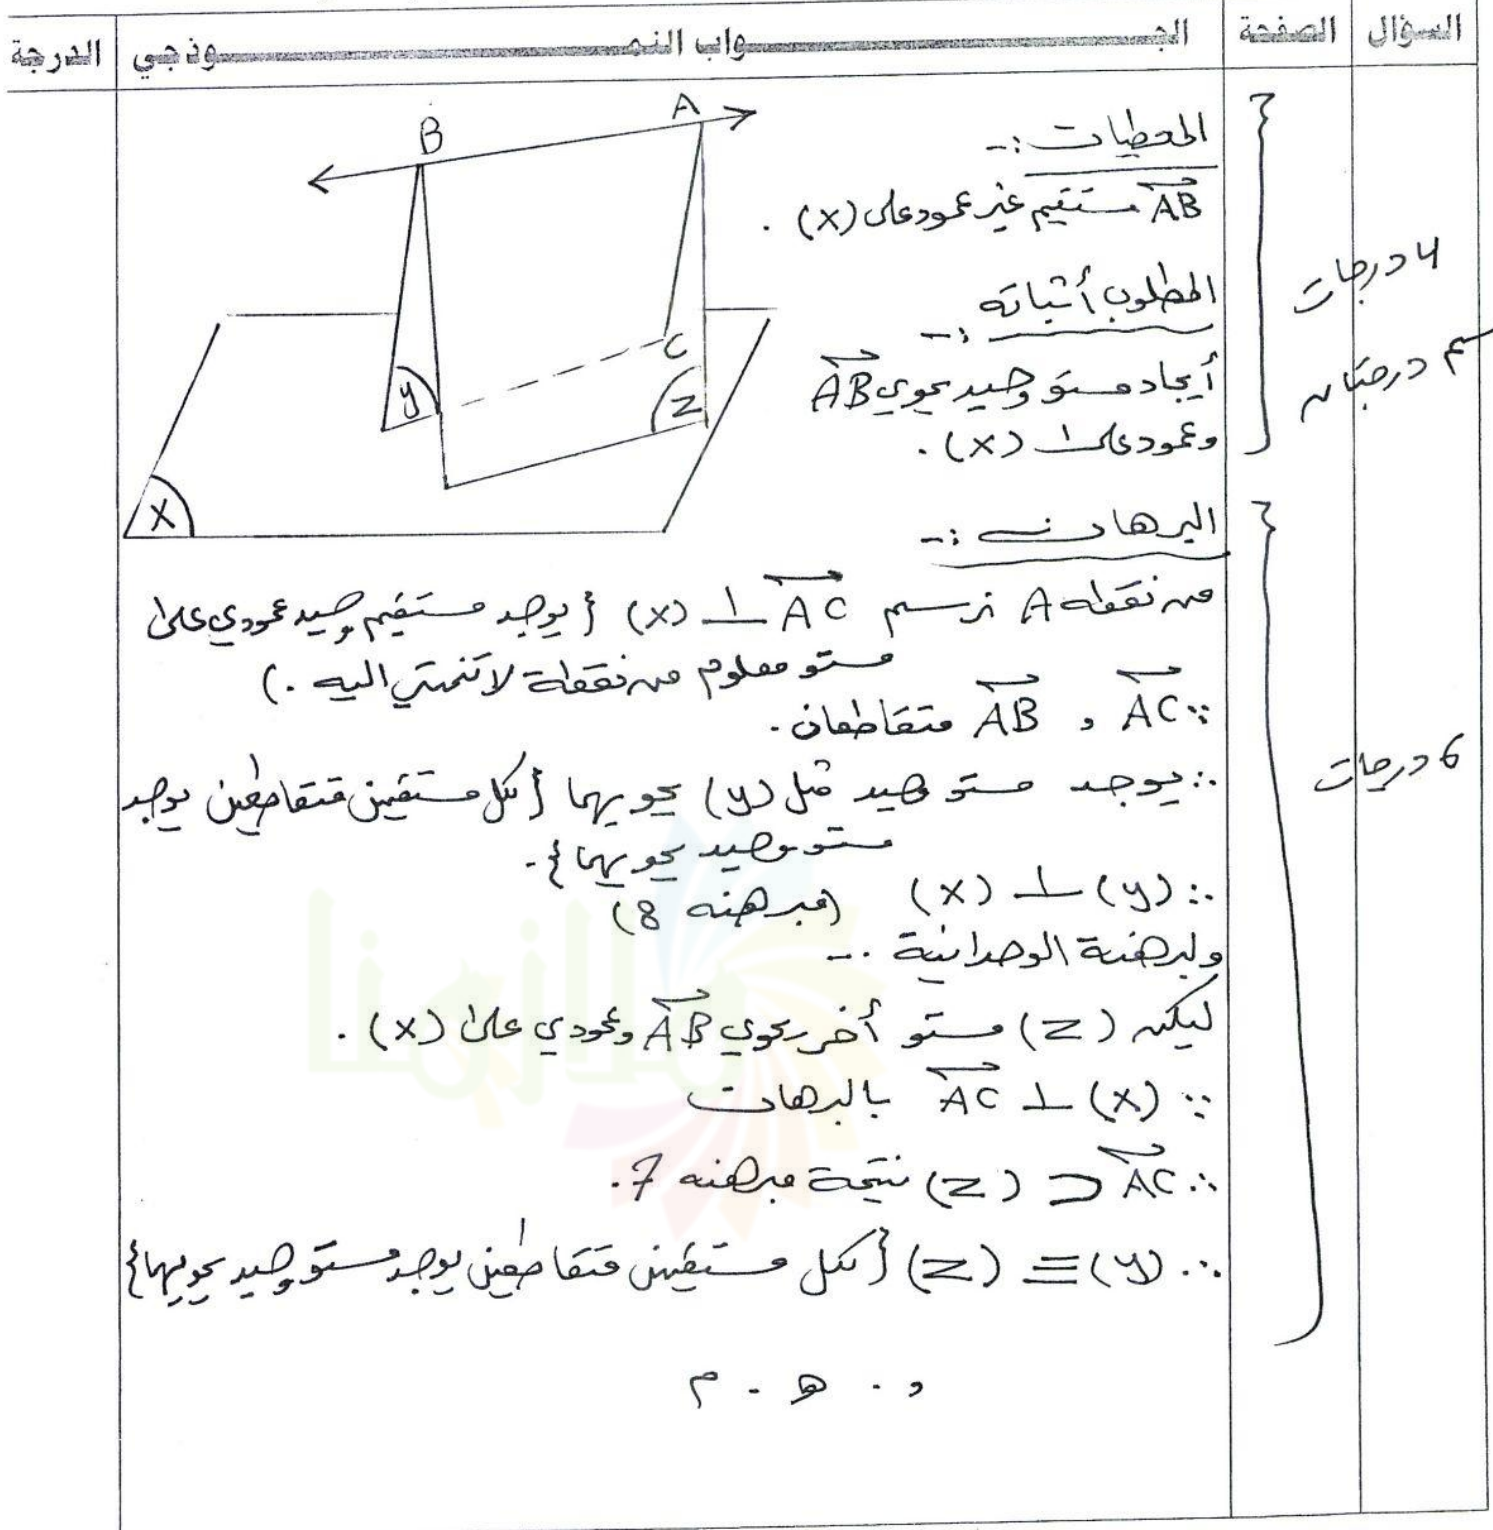 السؤال الصفحة الجـــواب النمـــوذجي الدرجة
A
B
C
y
z
x
المعطيات :-
AB مستقيم غير عمود على (x) .
المطلوب أثباته :-
أيجاد مستوٍ وحيد يحوي AB
وعمود على (x) .
4 درجات
درجتان
البرهان :-
من نقطة A نرسم AC ⊥ (x) { يوجد مستقيم وحيد عمودي على
مستو معلوم من نقطة لا تنتمي اليه . )
∵ AC , AB متقاطعان .
∴ يوجد مستو وحيد مثل (y) يحويهما { لكل مستقيمين متقاطعين يوجد
مستو وحيد يحويهما } .
∴ (y) ⊥ (x) (مبرهنه 8)
ولبرهنة الوحدانية :-
ليكن (z) مستو أخر يحوي AB وعمودي على (x) .
∵ (x) ⊥ AC بالبرهان
∴ AC ⊂ (z) نتيجة مبرهنه 7 .
∴ (y) ≡ (z) { لكل مستقيمين متقاطعين يوجد مستو وحيد يحويهما }
و . ه . م
6 درجات
ملازمنا